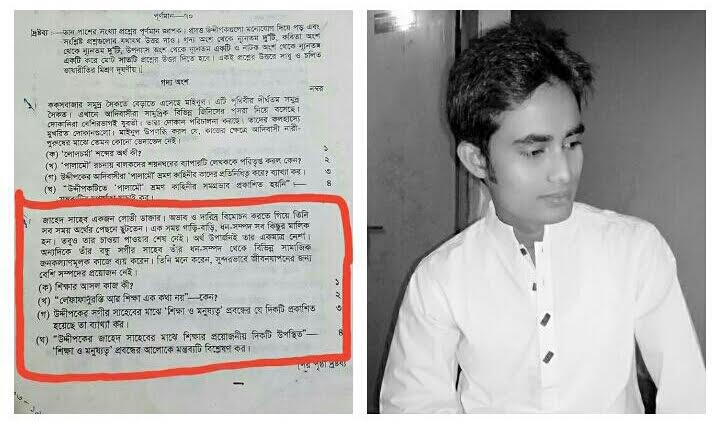 পূর্ণমান—৭০
দ্রষ্টব্য :— ডান পাশের সংখ্যা প্রশ্নের পূর্ণমান জ্ঞাপক। প্রদত্ত উদ্দীপকগুলো মনোযোগ দিয়ে পড় এবং
সংশ্লিষ্ট প্রশ্নগুলোর যথাযথ উত্তর দাও। গদ্য অংশ থেকে ন্যূনতম দু'টি, কবিতা অংশ
থেকে ন্যূনতম দু'টি, উপন্যাস অংশ থেকে ন্যূনতম একটি ও নাটক অংশ থেকে ন্যূনতম
একটি করে মোট সাতটি প্রশ্নের উত্তর দিতে হবে। একই প্রশ্নের উত্তরে সাধু ও চলিত
ভাষারীতির মিশ্রণ দূষণীয়।
গদ্য অংশ
নম্বর
কক্সবাজার সমুদ্র সৈকতে বেড়াতে এসেছে মাইনুল। এটি পৃথিবীর দীর্ঘতম সমুদ্র
সৈকত। এখানে আদিবাসীরা সামুদ্রিক বিভিন্ন জিনিসের পসরা নিয়ে বসেছে।
দোকানিরা বেশিরভাগই যুবতী। তারা দোকান পরিচালনা করছে। তাদের কলহাস্যে
মুখরিত দোকানগুলো। মাইনুল উপলব্ধি করল যে, কাজের ক্ষেত্রে আদিবাসী নারী-
পুরুষদের মাঝে তেমন কোনো ভেদাভেদ নেই।
(ক) 'লোলচর্ম' শব্দের অর্থ কী? ১
(খ) 'পালামৌ' রচনায় বালকদের ব্যাপারটি লেখককে পরিতৃপ্ত করল কেন? ২
(গ) উদ্দীপকের আদিবাসীরা 'পালামৌ' ভ্রমণ কাহিনীর কাদের প্রতিনিধিত্ব করে? ব্যাখ্যা কর। ৩
(ঘ) "উদ্দীপকটিতে 'পালামৌ' ভ্রমণ কাহিনীর সমগ্রভাব প্রকাশিত হয়নি"— ৪
কর।
জাহেদ সাহেব একজন লোভী ডাক্তার। অভাব ও দারিদ্র্য বিমোচন করতে গিয়ে তিনি
সব সময় অর্থের পেছনে ছুটতেন। এক সময় গাড়ি-বাড়ি, ধন-সম্পদ সব কিছুর মালিক
হন। তবুও তার চাওয়া পাওয়ার শেষ নেই। অর্থ উপার্জনই তার একমাত্র নেশা।
অন্যদিকে তাঁর বন্ধু সগীর সাহেব তাঁর ধন-সম্পদ থেকে বিভিন্ন সামাজিক
জনকল্যাণমূলক কাজে ব্যয় করেন। তিনি মনে করেন, সুন্দরভাবে জীবনযাপনের জন্য
বেশি সম্পদের প্রয়োজন নেই।
(ক) শিক্ষার আসল কাজ কী? ১
(খ) "লেফাফাদুরস্তি আর শিক্ষা এক কথা নয়"—কেন? ২
(গ) উদ্দীপকের সগীর সাহেবের মাঝে 'শিক্ষা ও মনুষ্যত্ব' প্রবন্ধের যে দিকটি প্রকাশিত ৩
হয়েছে তা ব্যাখ্যা কর।
(ঘ) "উদ্দীপকের জাহেদ সাহেবের মাঝে শিক্ষার প্রয়োজনীয় দিকটি উপস্থিত"— ৪
'শিক্ষা ও মনুষ্যত্ব' প্রবন্ধের আলোকে মন্তব্যটি বিশ্লেষণ কর।
পৃষ্ঠা দ্রষ্টব্য